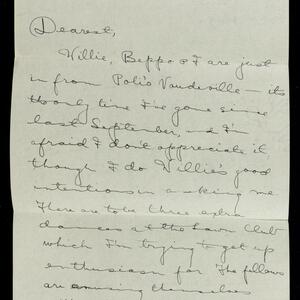 Dearest,
Willie, Beppo & I are just
in from Poli's Vaudeville – its
the only time I've gone since
last September, and I'm
afraid I don't appreciate it,
though I do Willie's good
intentions in asking me
There are to be three extra
dances at the Lawn Club
which I'm trying to get up
enthusiasm for. The fellows
are amusing themselves